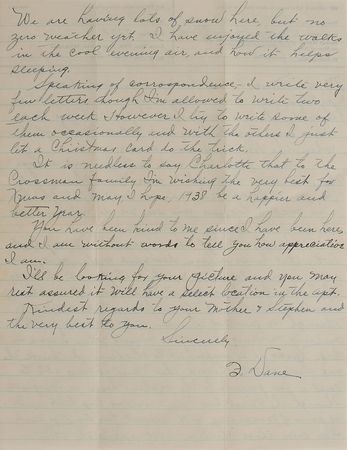 We are having lots of snow here, but no
zero weather yet. I have enjoyed the walks
in the cool evening air, and how it helps
sleeping.
Speaking of correspondence - I write very
few letters though I'm allowed to write two
each week. However I try to write some of
them occasionally and with the others I just
let a Christmas card do the trick.
It is needless to say Charlotte that to the
Crossman family I'm wishing the very best for
Xmas and may I hope, 1938 be a happier and
better year.
You have been kind to me since I have been here
and I am without words to tell you how appreciative
I am.
I'll be looking for your picture and you may
rest assured it will have a select location in the apt.
Kindest regards to your Mother & Stephen and
the very best to you.
Sincerely
Dane